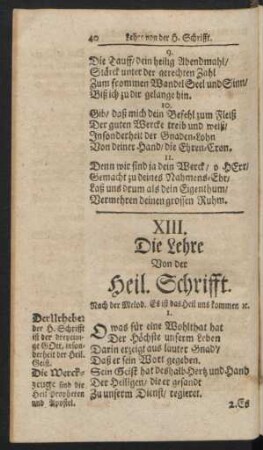 40 Lehre von der H. Schrifft.
9.
Die Tauff/ dein heilig Abendmahl/
Stärck unter der gerechten Zahl
Zum frommen Wandel Seel und Sinn/
Biß ich zu dir gelange hin.
10.
Gib/ daß mich dein Befehl zum Fleiß
Der guten Wercke treib und weiß/
Insonderheit der Gnaden-Lohn
Von deiner Hand/ die Ehren-Cron.
11.
Denn wir sind ja dein Werck/ o HErr/
Gemacht zu deines Nahmens-Ehr/
Laß uns drum als dein Eigenthum/
Vermehren deinen grossen Ruhm.
XIII.
Die Lehre
Von der
Heil. Schrifft.
Nach der Melod. Es ist das Heil uns kommen ꝛc.
1.
O was für eine Wohlthat hat
Der Höchste unserm Leben
Darin erzeigt aus lauter Gnad/
Daß er sein Wort gegeben.
Sein Geist hat deshalb Hertz und Hand
Der Heiligen/ die er gesandt
Zu unserm Dienst/ regieret.
Der Urheber
der H. Schrifft
ist der dreyeini-
ge GOtt, inson-
derheit der Heil.
Geist.
Die Werck-
zeuge sind die
Heil Propheten
und Apostel.
2. Es